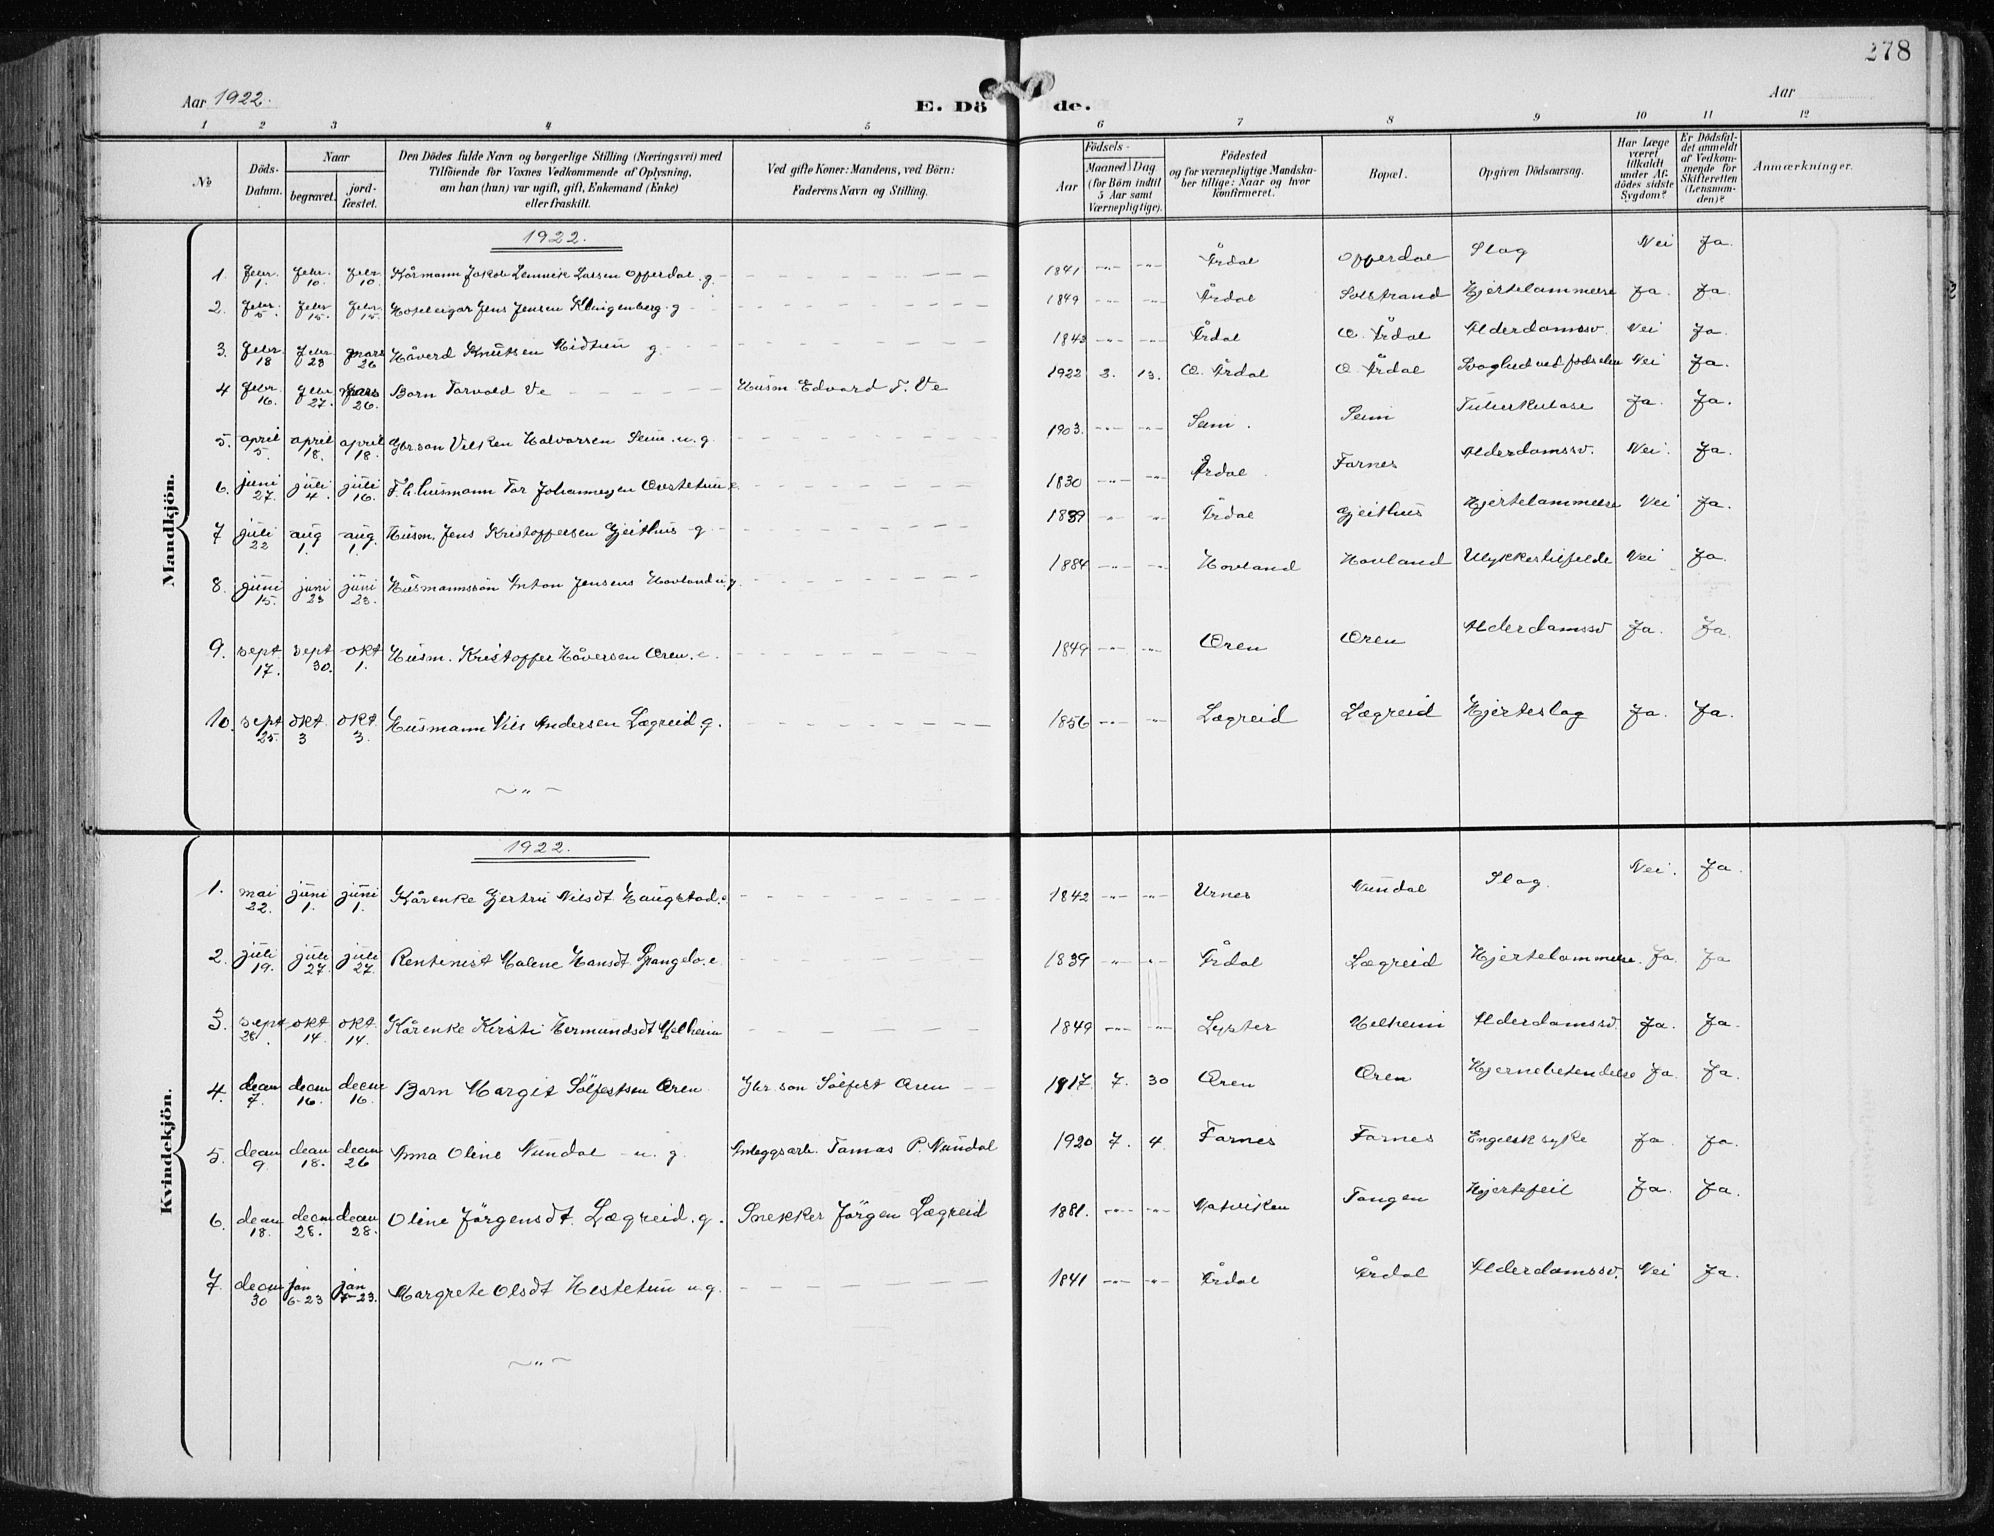 278
Aar 1922.
E. Döde.
Aar
1 2 3 4 5 6 7 8 9 10 11 12
No
Döds-Datum.
Naar
begravet.
jord-fæstet.
Den Dödes fulde Navn og borgerlige Stilling (Næringsvei) med
Tilföiende for Voxnes Vedkommende af Oplysning,
om han (hun) var ugift, gift, Enkemand (Enke)
eller fraskilt.
Ved gifte Koner: Mandens, ved Börn:
Faderens Navn og Stilling.
Födsels-
Aar
Maaned Dag
(for Börn indtil
5 Aar samt
Værnepligtige).
Födested
og for værnepligtige Mandska-
ber tillige: Naar og hvor
konfirmeret.
Bopæl.
Opgiven Dödsaarsag.
Har Læge
været
tilkaldt
under Af-
dödes sidste
Sygdom?
Er Dödsfal-
det anmeldt
af Vedkom-
mende for
Skifteretten
(Lensman-
den)?
Anmærkninger.
Mandkjön.
1922.
1. febr. 1. febr. 10. febr. 10. Kårmann Jakob Lassen Offerdal. g. 1841 Årdal Offerdal Slag Nei Ja.
2. febr. 5. febr. 15. febr. 15. Hotelleigar Jens Jensen Klingenberg. g 1849 Årdal Solstrand Hjertelammelse Ja. Ja.
3. febr. 18 febr. 23 mars 26 Håverd Knutsen Midtun g. 1843 Årdal O. Årdal Alderdomssv. Nei Ja.
4 febr. 16. febr. 27. mars 26. Barn Torvald Ve Husm. Edvard T. Ve 1922 2. 13. O. Årdal O. Årdal Svaghed ved fødselen Nei Ja.
5. april 5. april 18. april 18. Gbr.søn Halvorsen Seim. u. g. 1903. Seim. Seim Tuberkulose Ja. Ja.
6. juni 27. juli 4. juli 16. F. h. husmann Tor Johannessen e. 1830 Årdal. Farnes Alderdomssv. Nei. Ja.
7 juli 22 aug 1. aug. 1. Husm. Jens Kristoffersen Gjeithus g. 1839 Årdal Gjeithus Hjertelammelse Nei Ja.
8. juni 15. juni 23 juni 23. Husmannssøn Anton Jensens Hovland u. g. 1884 Hovland Hovland Ulykkestilfelde Nei Ja.
9. sept 17. sept 30. okt 1. Husm. Kristoffer Håversen Øren. e. 1849 Øren Øren Alderdomssv Ja. Ja.
10. sept 25. okt 3 okt 3. Husmann Nils Andersen Lægreid. g. 1856 Lægreid Lægreid Hjerteslag Ja. Ja.
Kvindekjön.
1922.
1. mai 22. juni 1. juni 1. Kårenke Gjertru Nilsdt. Haugstad. e 1842 Urnes Nundal Slag. Nei. Ja.
2. juli 19. juli 27. juli 27. Rentenist Malene Hansdt. Spangelo. e. 1839 Årdal Lægreid Hjertelammelse. Ja. Ja
3. sept 28. okt 14. okt. 14. Kårenke Kirsti Hermundsdt Melheim 1849 Lyster Melheim Alderdomssv. Ja. Ja.
4. decm 7. decm 16. decm 16. Barn Margit Sölfestsen Øren. Gbr. søn Sölfest Øren 1917. 7. 30 Øren Øren Hjernebetendelse Ja. Ja.
5. decm 9. decm 18. decm 26 Anna Oline Nundal u. g. Anleggsarb. Tomas P. Nundal 1920 7. 4. Farnes Farnes Engelsk syke Ja. Ja.
6. decm 18. decm 28. decm 28. Oline Jörgensdt. Lægreid. g. Snekker Jörgen Lægreid 1881. Natviken Tangen Hjertefeil Ja. Ja.
7. decm 30 jan 6-23 jan 7-23. Margrete Olsdt Hestetun u. g. 1841 Årdal Årdal Alderdomssv. Nei Ja.